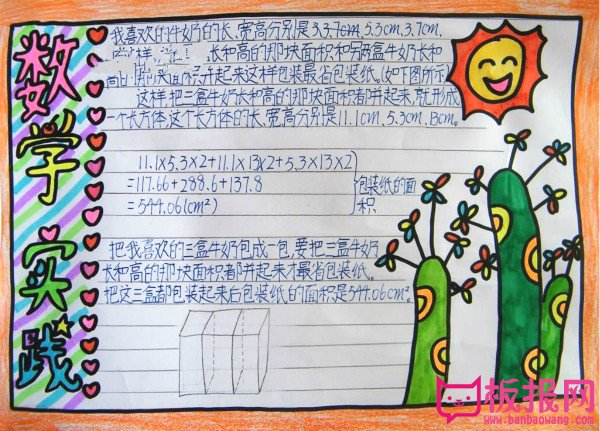 数学实践
我喜欢的牛奶的长、宽高分别是3,3.7cm,5.3cm,3.7cm,
这样 长和高的那块面积和另两盒牛奶长和
并起来这样包装最省包装纸。(如下图所示)
这样,把三盒牛奶长和高的那块面积都并起来,就形成
一个长方体,这个长方体的长、宽高分别是11.1cm、5.3cm、13cm。
11.1×5.3×2+11.1×13×2+5.3×13×2
=117.66+288.6+137.8
=544.06(cm²)
包装纸的面积
把我喜欢的三盒牛奶包成一包,要把三盒牛奶
长和高的那块面积都并起来才最省包装纸。
把这三盒都包装起来后包装纸的面积是544.06cm²。
板报网
www.banbaowang.com